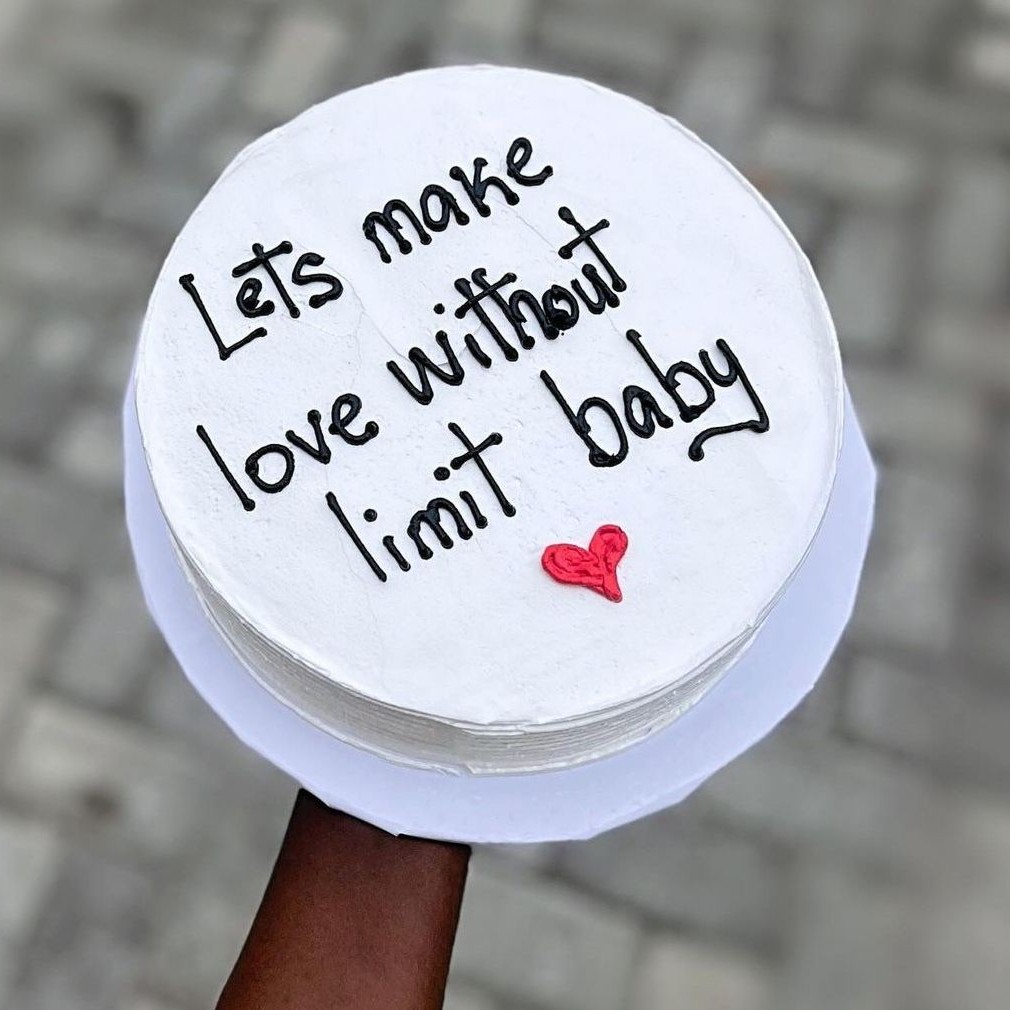 Lets make
love without
limit baby